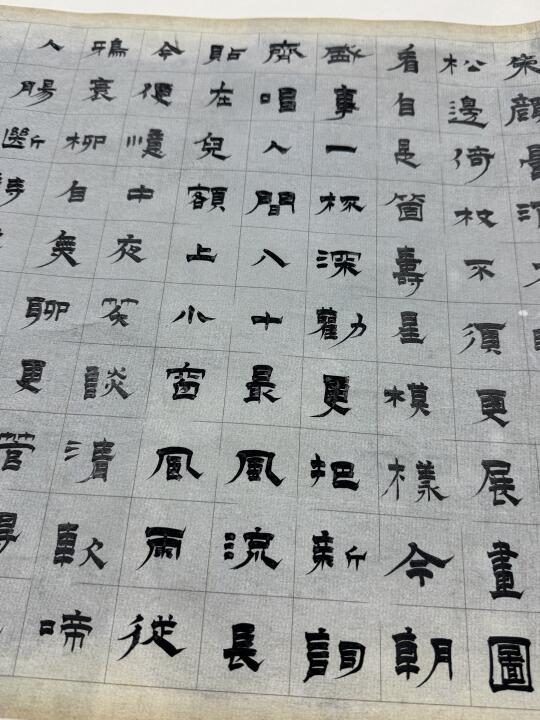 朱顏
松邊倚杖不須更展畫圖
看自是箇壽星模樣今朝
盛事一杯深勸更把新詞
齊唱人間八十最風流長
貼在兒額上小窗風雨從
今便憶中夜笑談清軟啼
鴉衰柳自無聊更管得
人腸斷詩